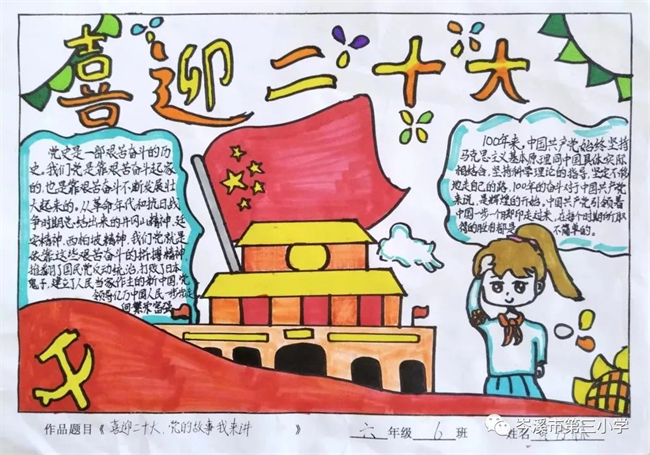 喜迎二十大
党史是一部艰苦奋斗的历
史,我们党是靠艰苦奋斗起家
的,也是靠艰苦奋斗不断发展壮
大起来的。从革命年代和抗日战
争时期总结出来的井冈山精神,延
安精神,西柏坡精神,我们党就是
依靠这些艰苦奋斗的拼搏精神,
推翻了国民党反动统治,打败了日本
鬼子,建立了人民当家作主的新中国,党
领导亿万中国人民一步步走
向繁荣富强
100年来,中国共产党始终坚持
马克思主义基本原理同中国具体实际
相结合,坚持科学理论的指导,坚定不移
地走自己的路,100年的奋斗对于中国共产党
来说,是辉煌的开始,中国共产党引领着
中国一步一个脚印走过来,在每个时期所取
得的胜利都是不简单的。
作品题目《喜迎二十大、党的故事我来讲》 六年级 6 班 姓名
岑溪市第三小学